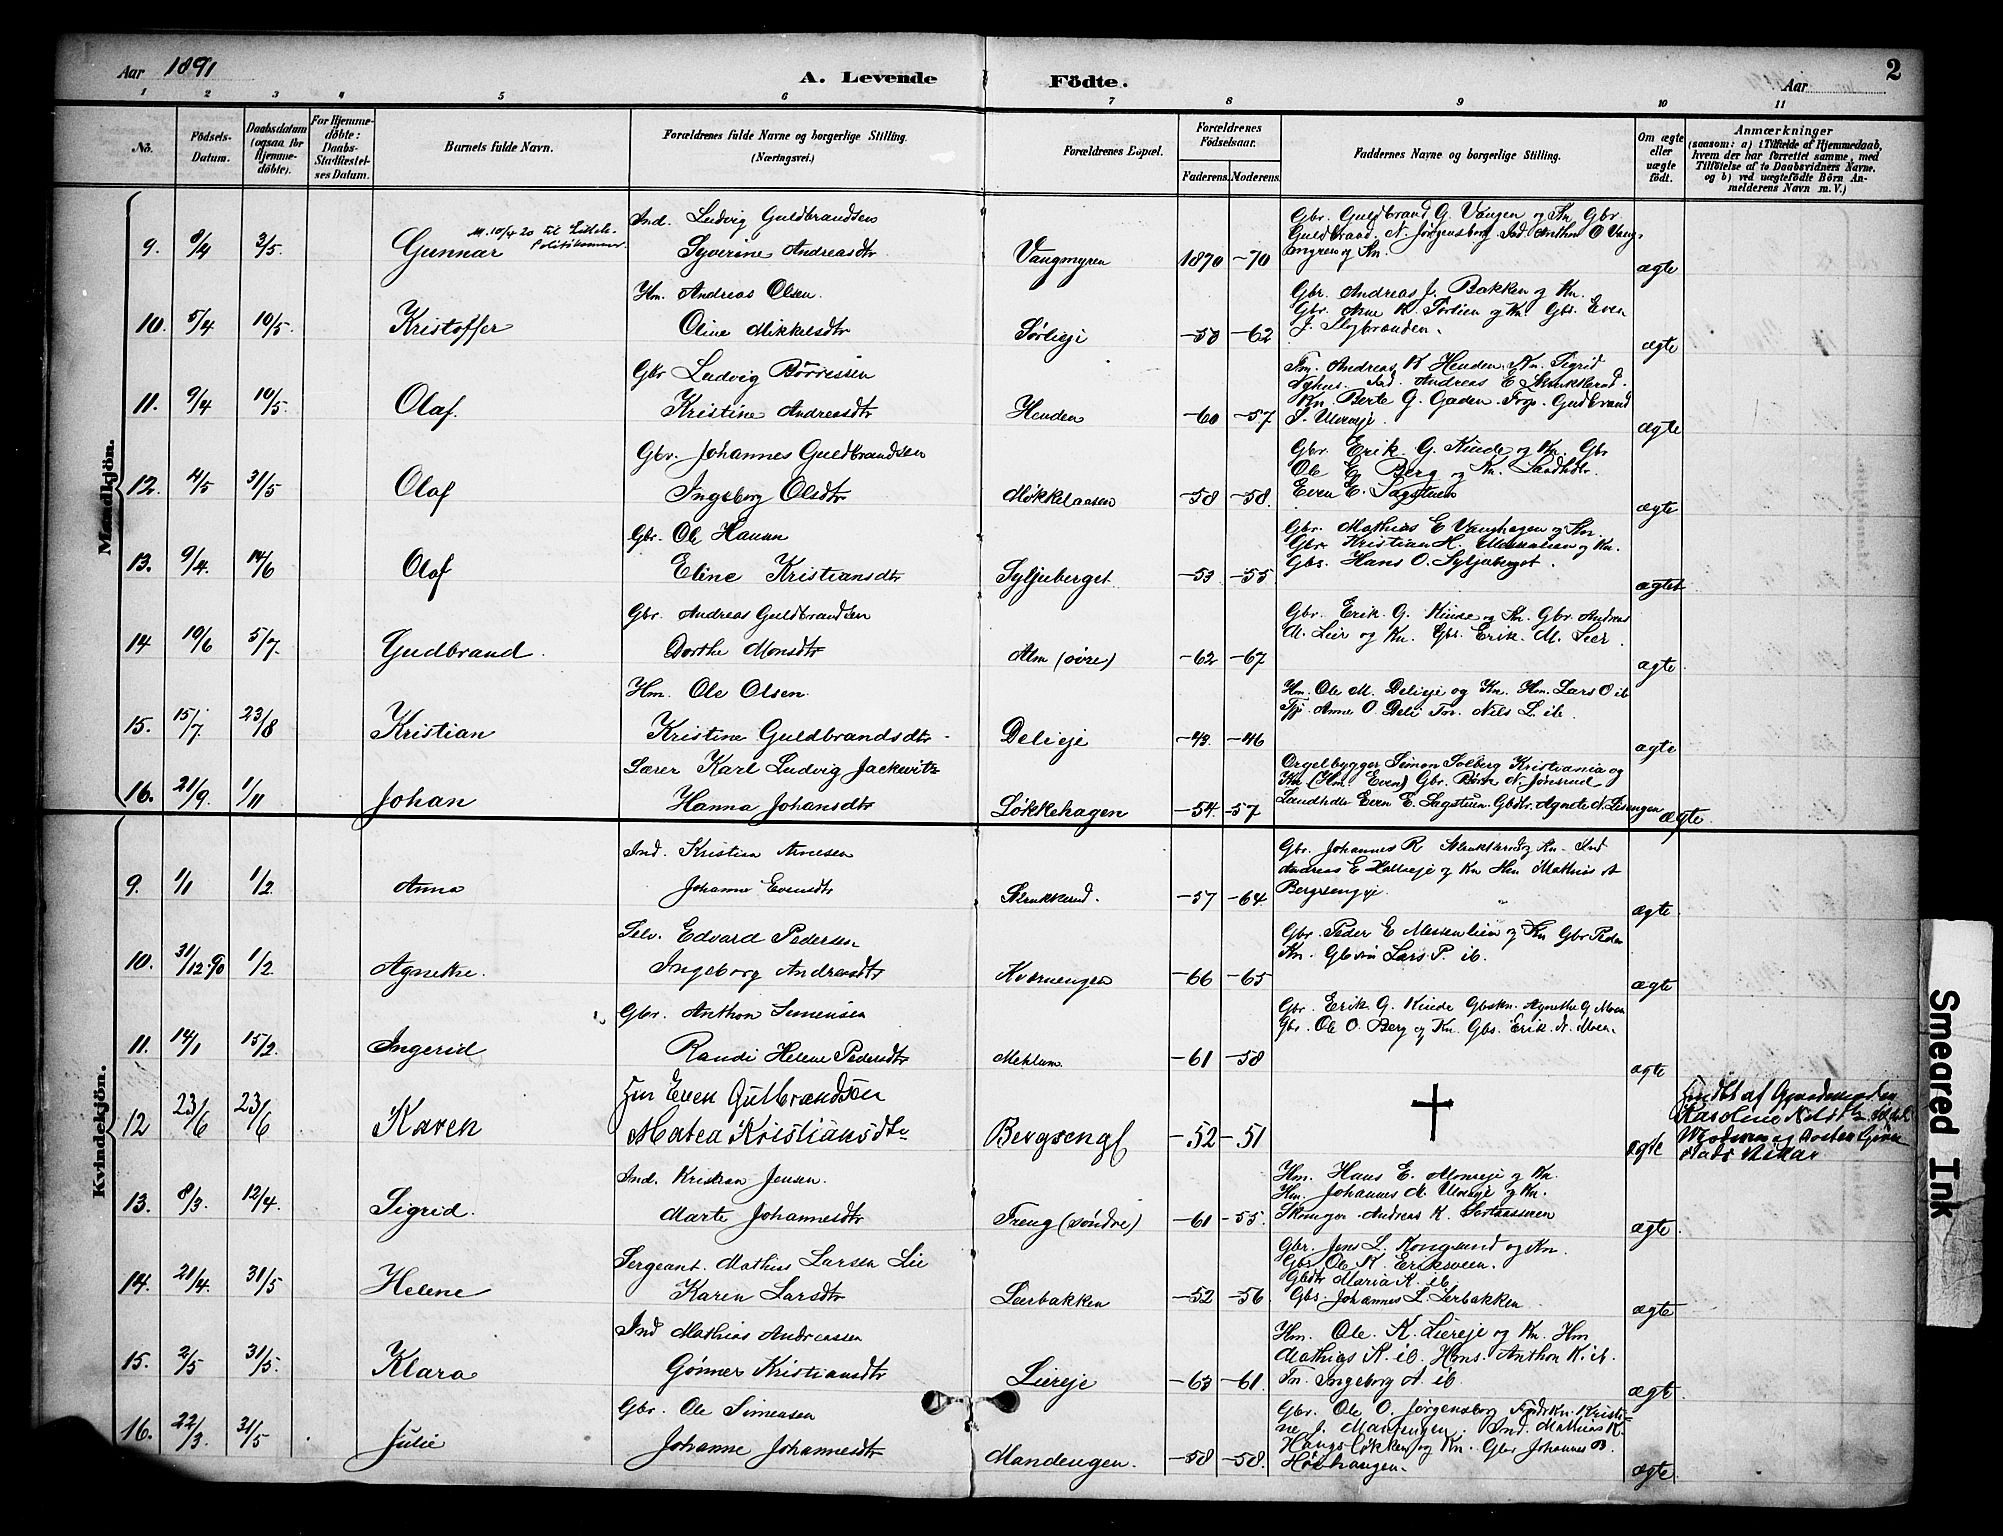 Aar 1891
A. Levende Födte.
2
Aar
1 2 3 4 5 6 7 8 9 10 11
No.
Födsels-Datum.
Daabsdatum (ogsaa for Hjemmedöbte).
For Hjemmedöbte: Daabs-Stadfæstelses Datum.
Barnets fulde Navn.
Forældrenes fulde Navne og borgerlige Stilling. (Næringsvei.)
Forældrenes Bopæl.
Forældrenes Födselsaar.
Faderens. Moderens.
Faddernes Navne og borgerlige Stilling.
Om ægte eller uægte födt.
Anmærkninger
(saasom: a) i Tilfælde af Hjemmedaab, hvem der har forrettet samme, med Tilföielse af to Daabsvidners Navne. og b) ved uægtefödte Börn Anmelderens Navn m. V.)
Mandkjön.
M. 10/4 20 til
Ind. Ludvig Guldbrandsen
Gbr. Guldbrand G. Vangen og Kn. Gbr.
9. 8/4 3/5 Gunnar Syverine Andreasdtr Vangmyren 1870 -70 Guldbrand N. Jørgensborg Ind. Anthon O Vangmyren og Kn. ægte
Hm. Andreas Olsen.
Gbr. Andreas J. Bakken og Kn.
10. 5/4 10/5 Kristoffer Oline Mikkelsdtr Sørlieje -58 -62 Gbr. Arne K. Sørlien og Kn. Gbs. Even J. ægte
Gbr Ludvig Børresen
11. 9/4 10/5. Olaf. Kristine Andreasdtr Henden -60 -57 Andreas K Henden Kn. Sigrid Nyhus. Ind. Andreas E Kn. Berte G. Gaden Gudbrand ægte
Gbr. Johannes Guldbrandsen
12. 4/5 31/5 Olaf Ingeborg Olsdtr Møkkelaasen -58 -58. Gbr. Erik G. Kinde og Kn. Gbr Ole E. Berg og Kn. Landhdlr. Even E. Sagstuen ægte
Gbr. Ole Hansen
13. 9/4. 14/6 Olaf Eline Kristiansdtr Syljuberget -53 -55 Gbr. Mathias E Vanghagen og Kn. Gbr. Kristian H. Messenlien og Kn. Gbs. Hans O. Syljuberget. ægte
Gbr. Andreas Guldbrandsen
14 10/6 5/7 Gudbrand. Dorthe Monsdtr Alm (øvre) -62 -67 Gbr. Erik G. Kinde og Kn. Gbr. Andreas M. Lier og Kn. Gbs. Erik. M. Lier. ægte
Hm. Ole Olsen
15. 15/7 23/8 Kristian Kristine Guldbrandsdtr Delieje -43. -46 Hm. Ole M. Delieje og Kn. Hm. Lars O ib Tjp. Anne O. Deli Nils L. ib. ægte
Lærer Karl Ludvig Jackwitz
16. 21/9. 1/11 Johan Hanna Johansdtr Løkkehagen -54 -57 Orgelbygger Simon Solberg Kristiania og Kn (Hm. Even) Gbr. Børre N. Jønsrud Landhdlr Even E. Sagstuen. Gbdtr. Agnete N. ægte
Kvindekjön.
Ind. Kristian Arnesen
9. 1/1 1/2. Anna Johanne Evensdtr Skrukkerud. -57 -64. Gbr. Johannes R og Kn. Ind Andreas E og Kn Hm Mathias A Bergsengeje ægte
Selv. Edvard Pedersen
10. 31/12 90 1/2 Agnethe. Ingeborg Andreasdtr Kværnengen -66 -65 Gbr. Peder E Messenlien og Kn Gbr Peder Kn. Lars P. ib. ægte
Gbr. Anthon Simensen
11. 14/1 15/2. Ingerid Randi Helene Pedersdtr Mehlum -61 -58 Gbr. Erik G. Kinde Gbskn. Agnethe G Moen Gbr. Ole O. Berg og Kn. Gbs. Erik N. Moen. ægte
12 23/6 23/6 Karen Hm Even Gulbrandsen Matea Kristiansdtr Bergsengj -52 -51 ægte
Døbt af Gjordemoder
Karoline
Moderen og
Ind. Kristian Jensen.
13. 8/3. 12/4. Sigrid. Marte Johannesdtr Treng (søndre) -61 -55. Hm. Hans E. Almseje og Kn. Hm. Johannes M. og Kn. Andreas K. ægte
Sergeant. Mathias Larsen Lie
14. 21/4. 31/5 Helene Karen Larsdtr Lærbakken -52 -56. Gbr. Jens L. Kongsund og Kn. Gbs Ole K. Eriksveen. Gbdtr Maria K. ib. Gbs. Johannes L Lerbakken ægte
Ind Mathias Andreassen
15. 2/5 31/5. Klara Gønner Kristiansdtr Liereje -63 -61. Hm. Ole K. Liereje og Kn. Hm Mathias K. ib. Anthon K. ib. Ingeborg A. ib. ægte
Gbr. Ole Simensen
16. 22/3. 31/5 Julie Johanne Johannesdtr Mandengen. -58 -58. Gbr. Ole O. Jørgensborg Kristine J. Mandengen. Ind. Mathias K Haugsløkken og Kn. Gbr Johannes B. ægte
Smeared Ink